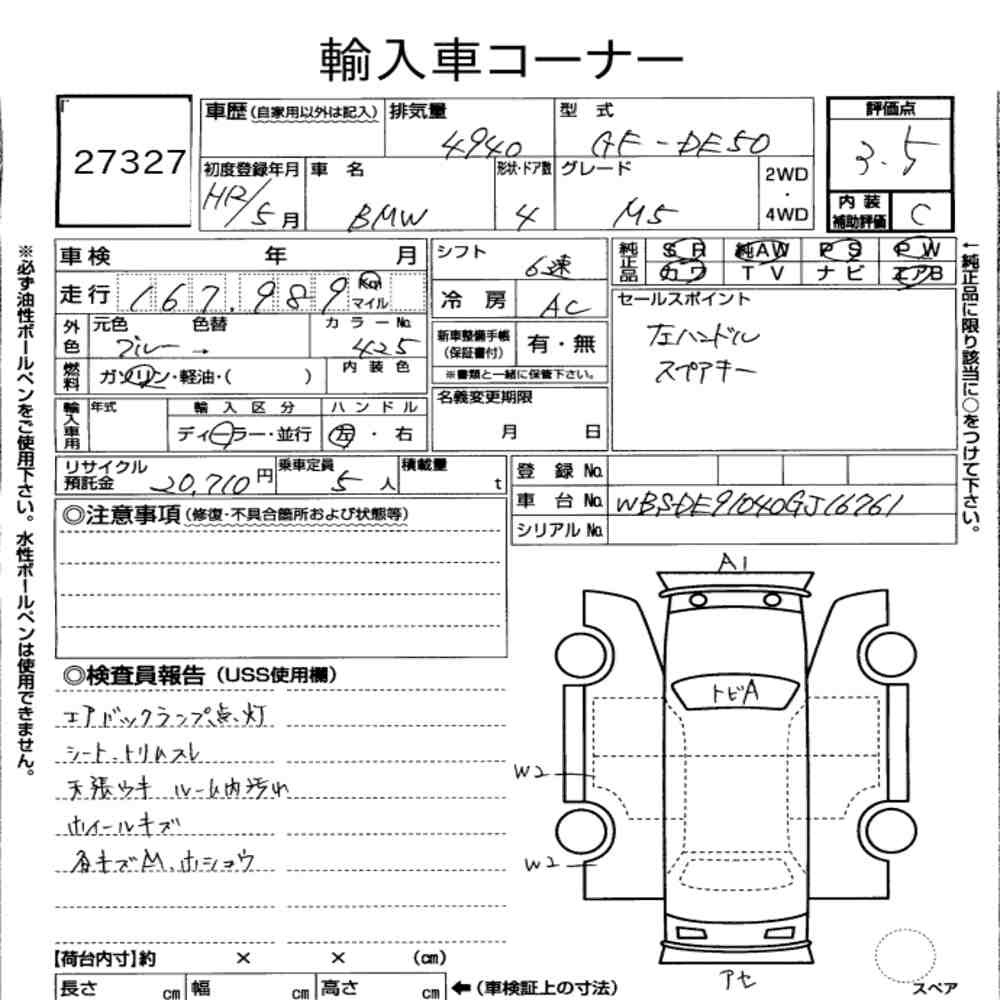 輸入車コーナー
27327
車歴(自家用以外は記入)
排気量 4940
型式 GF-DE50
評価点 3.5
初度登録年月 H12/5月
車名 BMW
形状・ドア数 4
グレード M5
2WD
・
4WD
内装
補助評価 C
車検 年 月
走行 167,989 Km マイル
シフト 6速
冷房 AC
純正品 SR 純AW PS PW
カワ TV ナビ エアB
外色 元色 ブルー → 色替 カラーNo. 425
燃料 ガソリン・軽油・( ) 内装色
新車整備手帳
(保証書付) 有・無
※書類と一緒に保管下さい。
セールスポイント
左ハンドル
スペアキー
輸入車用 年式 輸入区分 ハンドル
ディーラー・並行 左・右
名義変更期限
月 日
リサイクル
預託金 20,710円
乗車定員 5人
積載量 t
登録No.
車台No. WBSDE91040GJ16761
シリアルNo.
◎注意事項(修復・不具合箇所および状態等)
◎検査員報告(USS使用欄)
エアバックランプ点灯
シート、トリムスレ
天張ウキ ルーム内汚れ
ホイールキズ
各キズM、ホショウ
A1
トビA
W2
W2
アセ
スペア
【荷台内寸】約 × × (cm)
長さ cm 幅 cm 高さ cm ←(車検証上の寸法)
※必ず油性ボールペンをご使用下さい。水性ボールペンは使用できません。
←純正品に限り該当に○をつけて下さい。